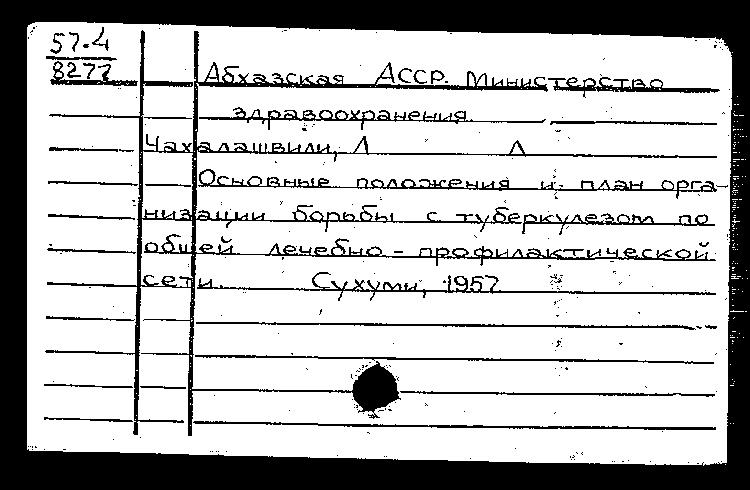 57.4
8277
Абхазская АССР. Министерство
здравоохранения.
Чахалашвили, Л Л
Основные положения и план орга-
низации борьбы с туберкулезом по
общей лечебно-профилактической
сети. Сухуми, 1957